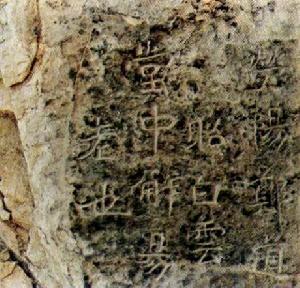 滎陽鄭道
昭白雲
堂中解易
老也